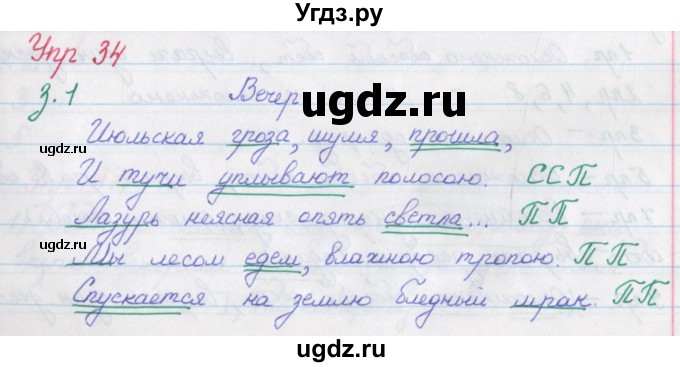 Угдз.ру
Упр 34
ugdz.ru
З.1 Вечер
ugdz.ru
Июльская гроза, шумя, прошла,
И тучи уплывают полосою. ССП
ugdz.ru
Лазурь неясная опять светла... ПП
Мы лесом едем, влажною тропою. ПП
Спускается на землю бледный мрак. ПП
ugdz.ru
ugdz.ru